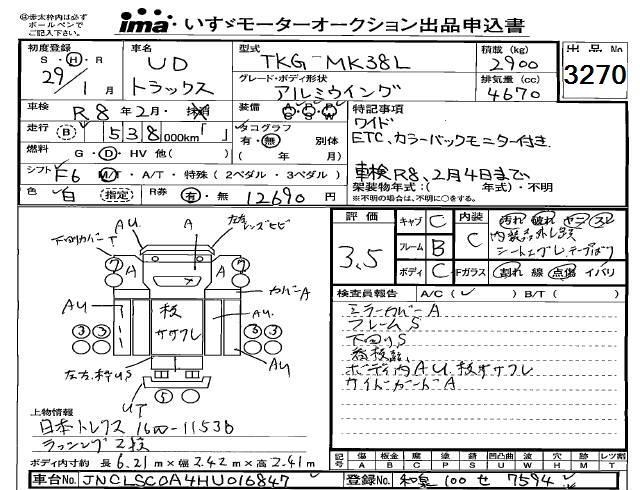 ㊟赤太枠内は必ず
ボールペンで
ご記入下さい。
ima・いすゞモーターオークション出品申込書
初度登録 S・H・R 29/1月
車名 UDトラックス
型式 TKG-MK38L
グレード・ボディ形状 アルミウイング
積載(kg) 2900
排気量(cc) 4670
出品No 3270
車検 R8年2月
装備
特記事項
走行 B 538,000km「 」
タコグラフ 有・無 別体 ( 年 月)
ワイド
ETC、カラーバックモニター付き
燃料 G・D・HV 他( )
シフト F6 MT・A/T・特殊(2ペダル・3ペダル)
車検R8、2月4日まで
架装物年式:( 年式)・不明
※不明の場合は、不明に○をする。
色 白 指定 R券 有・無 12690円
評価 3.5
キャブ C
フレーム B
ボディ C
内装 C
汚れ 破れ ヤニ スレ
Fガラス 割れ 線 点傷 イバリ
左右レンズヒビ
AU
A
下回りカバーT
A
A
カバーA
AU
板ササクレ
AU
左右枠US
UT
7
7
3
3
3
3
5
検査員報告 A/C(✓) B/T( )
ミラーカバーA
フレームS
下回りS
ボディ内AU.板ササクレ
サイドガードA
上物情報
日本トレクス 1600-11538
ラッシング2段
ボディ内寸約 長6.21m×幅2.42m×高2.41m
記号 傷A 板金B 腐C 塗P 錆S 凹凸曲U 波W 穴H 亀裂M 補跡X 欠品T レツ割Z
車台No. JNCLSC0A4HU016847
登録No. 和泉 100 せ 7594